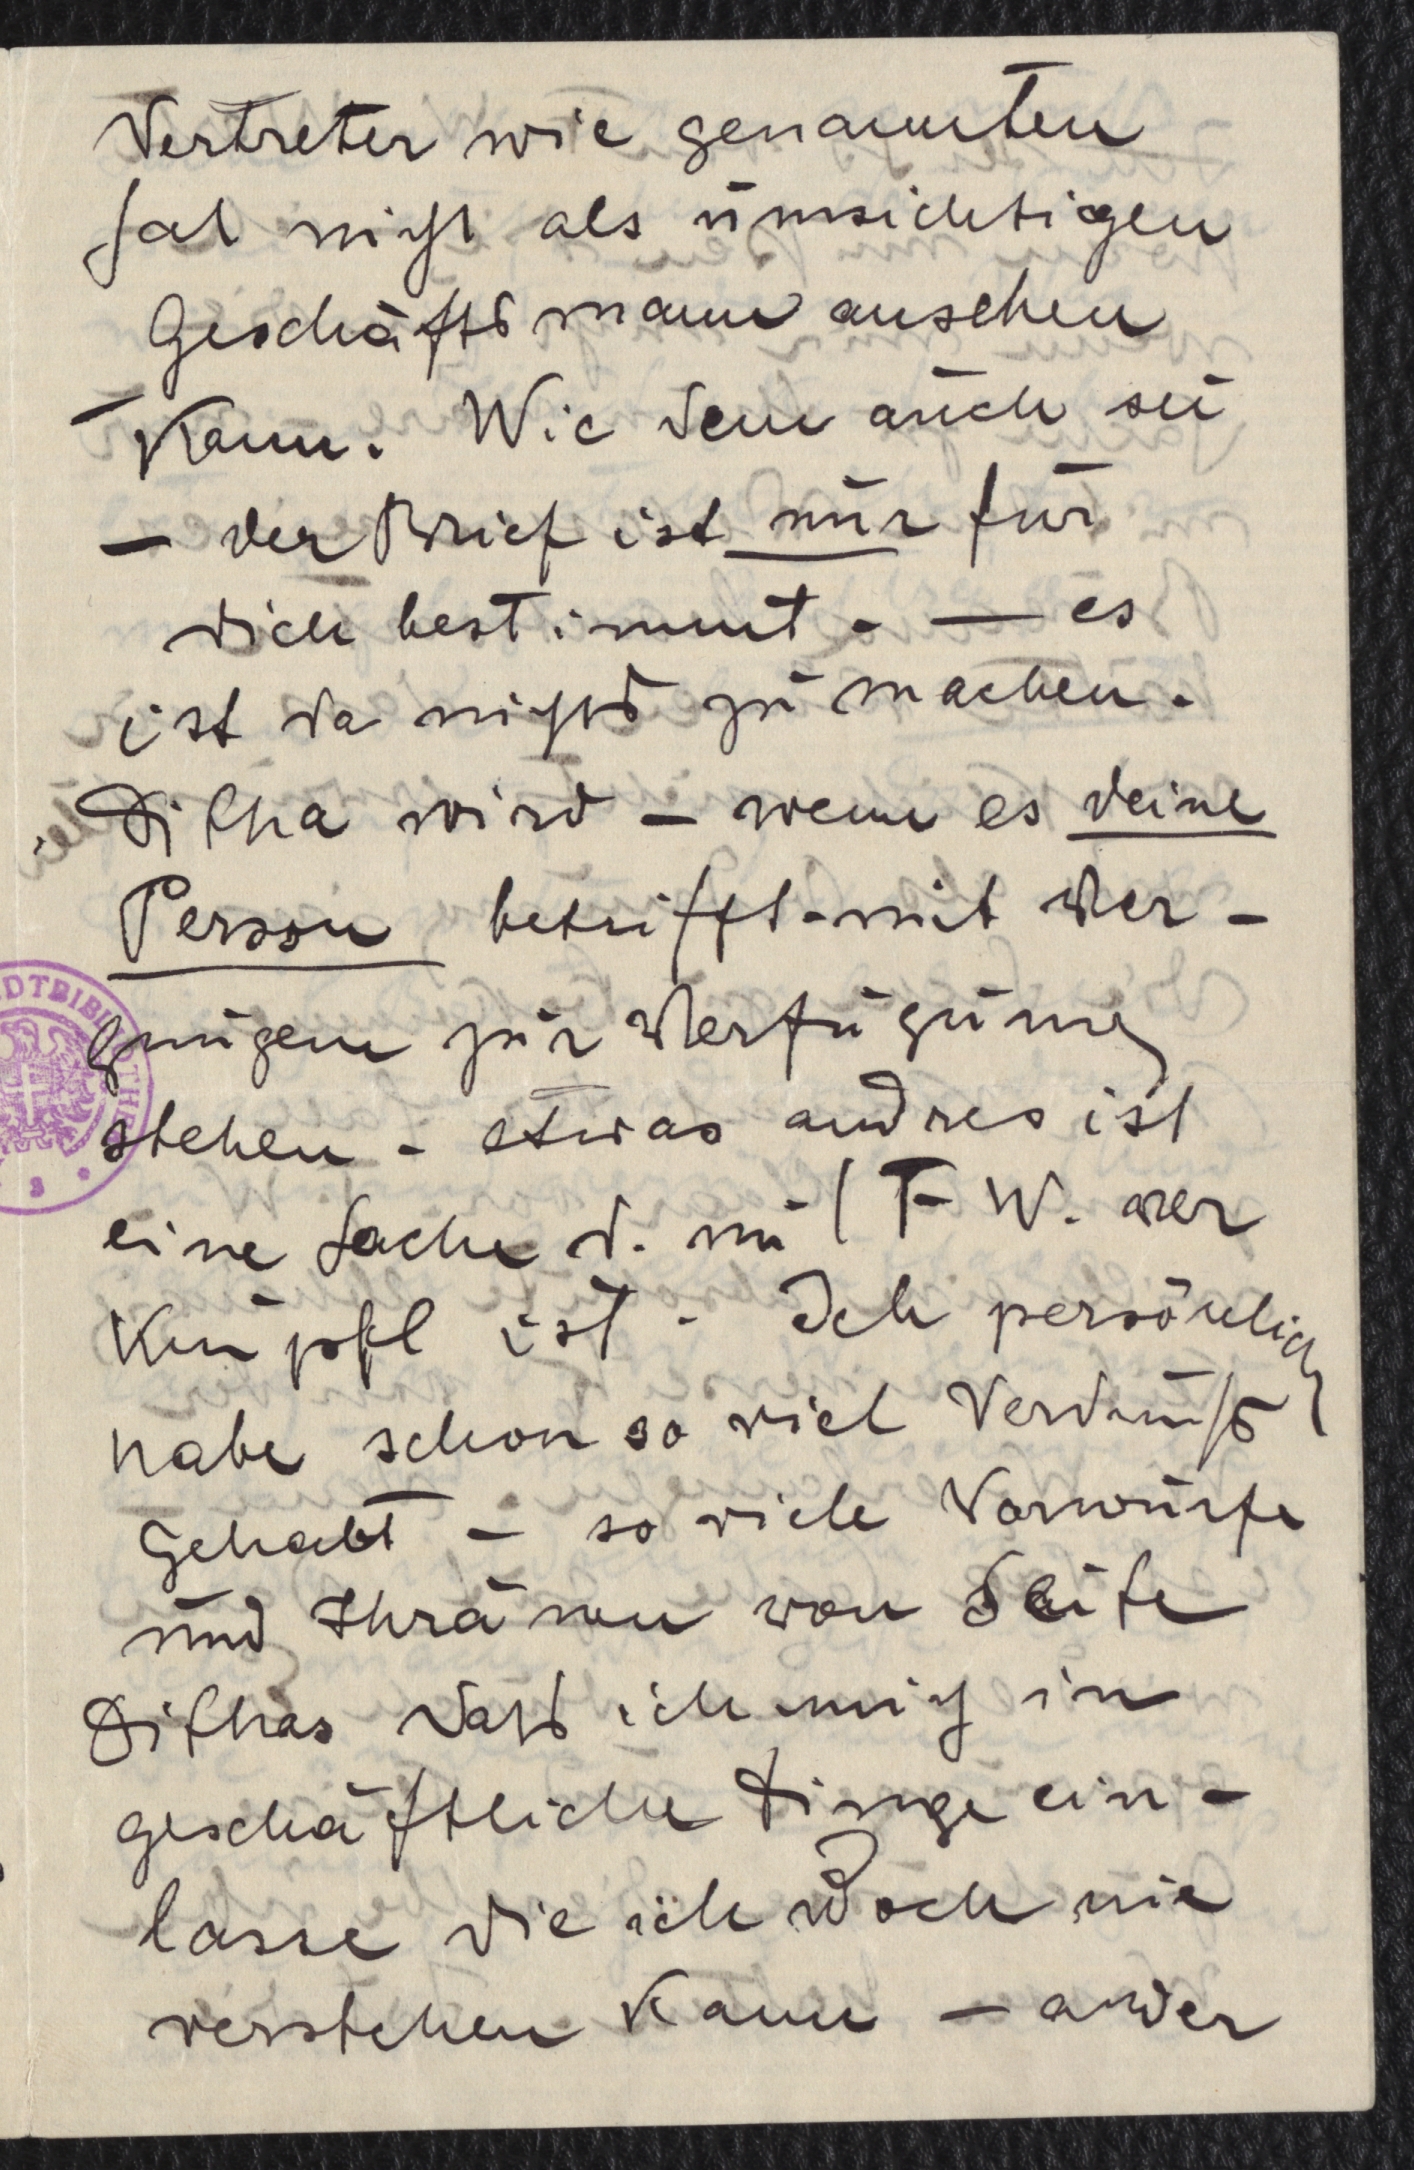 Vertreter wie genannten
hat nicht als umsichtigen
Geschäftsmann ansehen
kann. Wie dem auch sei
– der Brief ist nur für
dich bestimmt. — es
ist da nichts zu machen.
Ditha wird – wenn es deine
Person betrifft - mit Ver-
gnügen zur Verfügung
stehen – etwas andres ist
eine Sache d. mit F W. ver
knüpft ist. Ich persönlich
habe schon so viel Verdruß
gehabt – so viele Vorwürfe
und Thränen von Seite
Dithas daß ich mich in
geschäftliche Dinge ein-
lasse die ich doch nie
verstehen kann – ander
DTBIBL